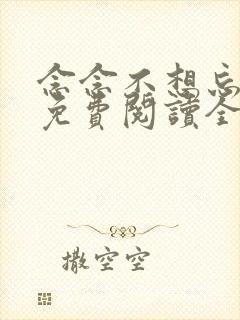 念念不想忘
免費閱讀全
撒空空